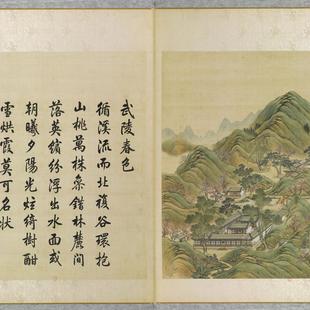 武陵春色
循溪流而北複谷環抱
山桃萬株參錯林麓間
落英繽紛浮出水面或
朝曦夕陽光炫綺樹酣
雪烘霞莫可名狀